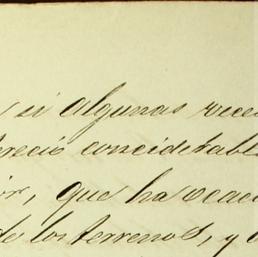 si algunas vece
erecio conciderabl
ir, que ha ocaci
de los terrenos, y